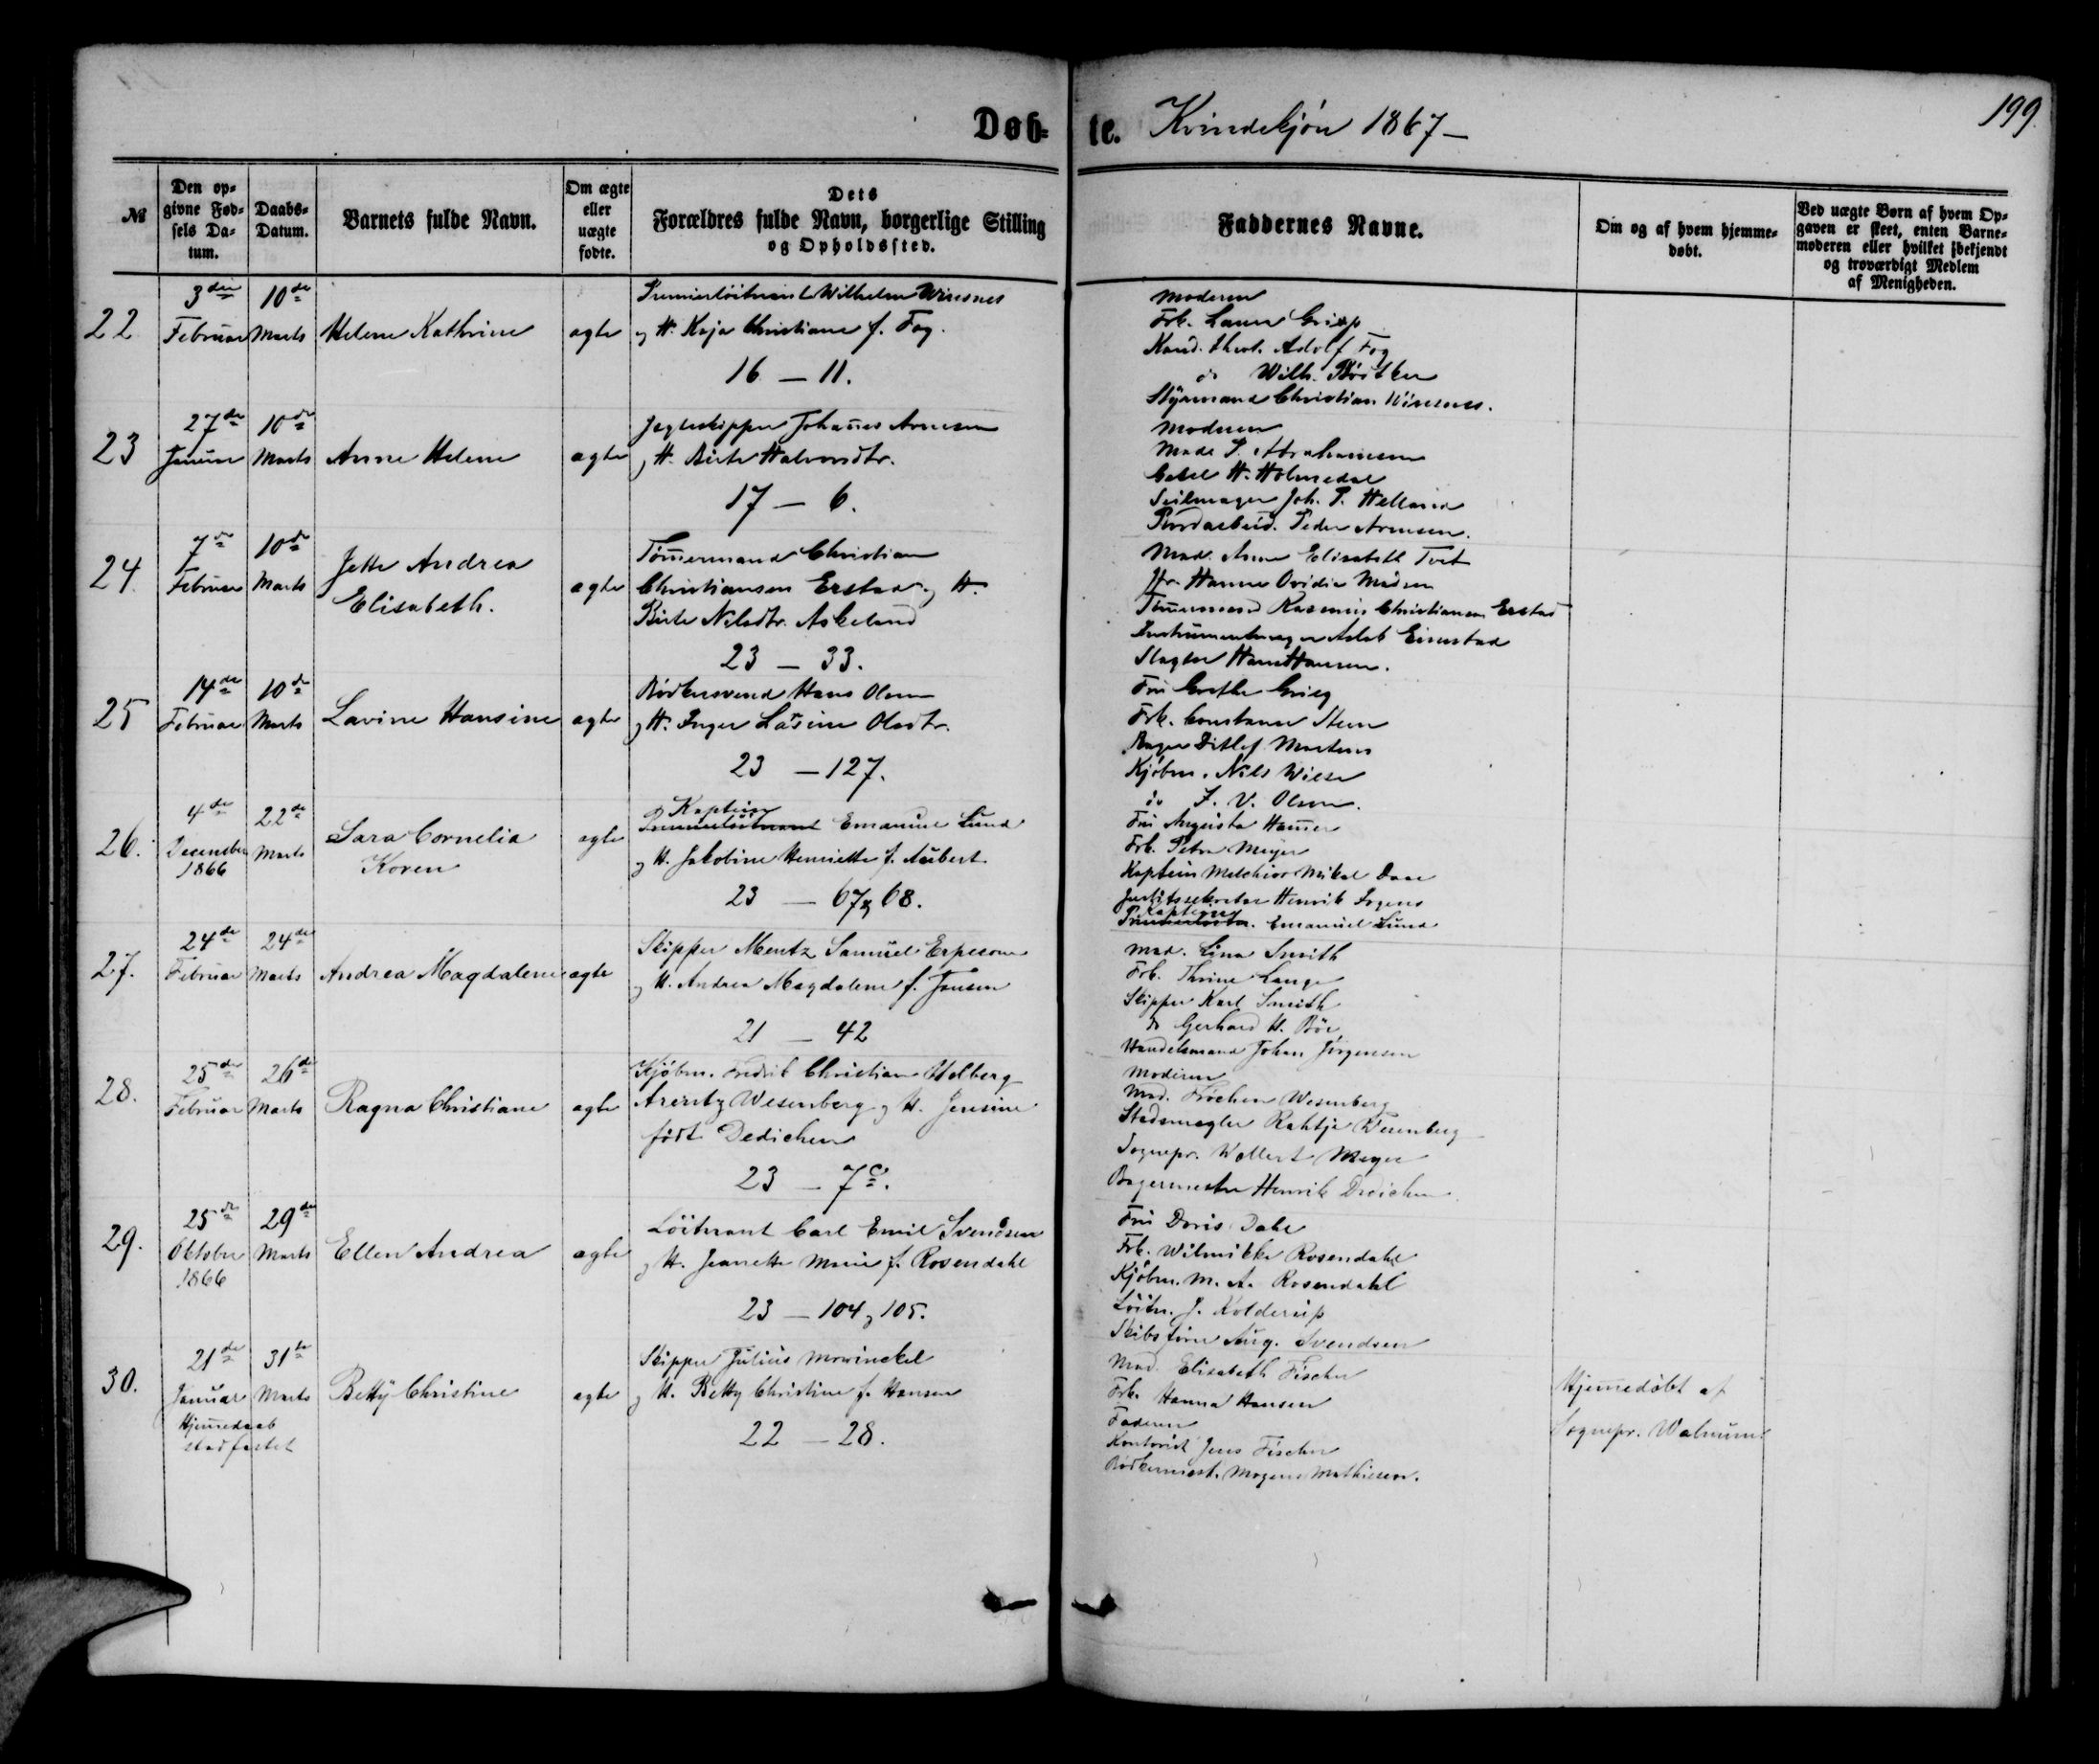 Døb-
te. Kvindekjøn 1867 –
199.
№
Den op-
givne Fød-
sels Da-
tum.
Daabs-
Datum.
Barnets fulde Navn.
Om ægte
eller
uægte
fødte.
Dets
Forældres fulde Navn, borgerlige Stilling
og Opholdssted.
Faddernes Navne.
Om og af hvem hjemme-
døbt.
Ved uægte Børn af hvem Op-
gaven er skeet, enten Barne-
moderen eller hvilket bekjendt
og troværdigt Medlem
af Menigheden.
22
3die
Februar
10de
Marts
Helene Kathrine
ægte
Premierløitnant Wilhelm Wiesnes
og H. Kaja Christiane f. Fog.
16 – 11.
Moderen
Frk. Laura
Kand. theol. Adolf Fog
do Wilh. Bödtker
Styrmand Christian Wiesnes.
23
27de
Januar
10de
Marts
Anne Helene
ægte
Jagteskipper Johannes Arnesen
og H. Birte Halvorsdtr.
17 – 6.
Moderen
Made P. Abrahamsen
H. Holmedal
Seilmager Joh. P. Helland
Peder Arnesen.
24.
7de
Februar
10de
Marts
Jette Andrea
Elisabeth.
ægte
Tømmermand Christian
Christiansen Erstad og H.
Birte Nilsdtr. Askeland
23 – 33.
Mad. Anne Elisabeth Tvet
Hanna Ovidia
Tømmermand Rasmus Christiansen Erstad
Instrumentmager Aslak
Slagter Hans Hansen.
25
14de
Februar
10de
Marts
Lavine Hansine
ægte
Bödkersvend Hans Olsen
og H. Inger Lavine Olsdtr.
23 – 127.
Fru Grethe Grieg
Frk. Constance Steen
Bager Ditlef Martens
Kjøbm. Nils Wiese
do J. V. Olsen.
26.
4de
December
1866
22de
Marts
Sara Cornelia
Koren
ægte
Kaptein
Premierløitnant Emanuel Lund
og H. Jakobine Henriette f. Aubert
23 – 67 og 68.
Fru Augusta Hammer
Frk. Petra Meyer
Kaptein Melchior Mikal Daae
Justitssekretær Henrik Irgens
Kaptein
Premierløitn. Emanuel Lund
27.
24de
Februar
24de
Marts
Andrea Magdalene
ægte
Skipper Mentz Samuel Erpesom
og H. Andrea Magdalene f. Jansen
21 – 42
Mad. Lina Smith
Frk. Thrine Lange
Skipper Karl Smith
do Gerhard H. Böe
Handelsmand Johan Jörgensen
28.
25de
Februar
26de
Marts
Ragna Christiane
ægte
Kjøbm. Fredrik Christian Holberg
Arentz Wesenberg og H. Jensine
født Dedichen
23 – 7c.
Moderen
Mad. Wesenberg
Stadsmægler Rahtje Wesenberg
Sognepr. Wollert Meyer
Bagermester Henrik Dedichen.
29.
25de
Oktober
1866
29de
Marts
Ellen Andrea
ægte
Löitnant Carl Emil Svendsen
og H. Jeanette Marie f. Rosendahl
23 – 104 og 105.
Fru Doris Dahl
Frk. Wilmikke Rosendahl
Kjøbm. M. A. Rosendahl
Löitn. J. Kolderup
Skibsfører Aug. Svendsen
30.
21de
Januar
Hjemmedaab
stadfæstet
31te
Marts
Betty Christine
ægte
Skipper Julius Mowinckel
og H. Betty Christine f. Hansen
22 – 28.
Mad. Elisabeth Fischer
Frk. Hanna Hansen
Faderen
Kontorist Jens Fischer
Bödkermest. Mogens Mathiesen.
Hjemmedøbt af
Sognepr. Walnum.